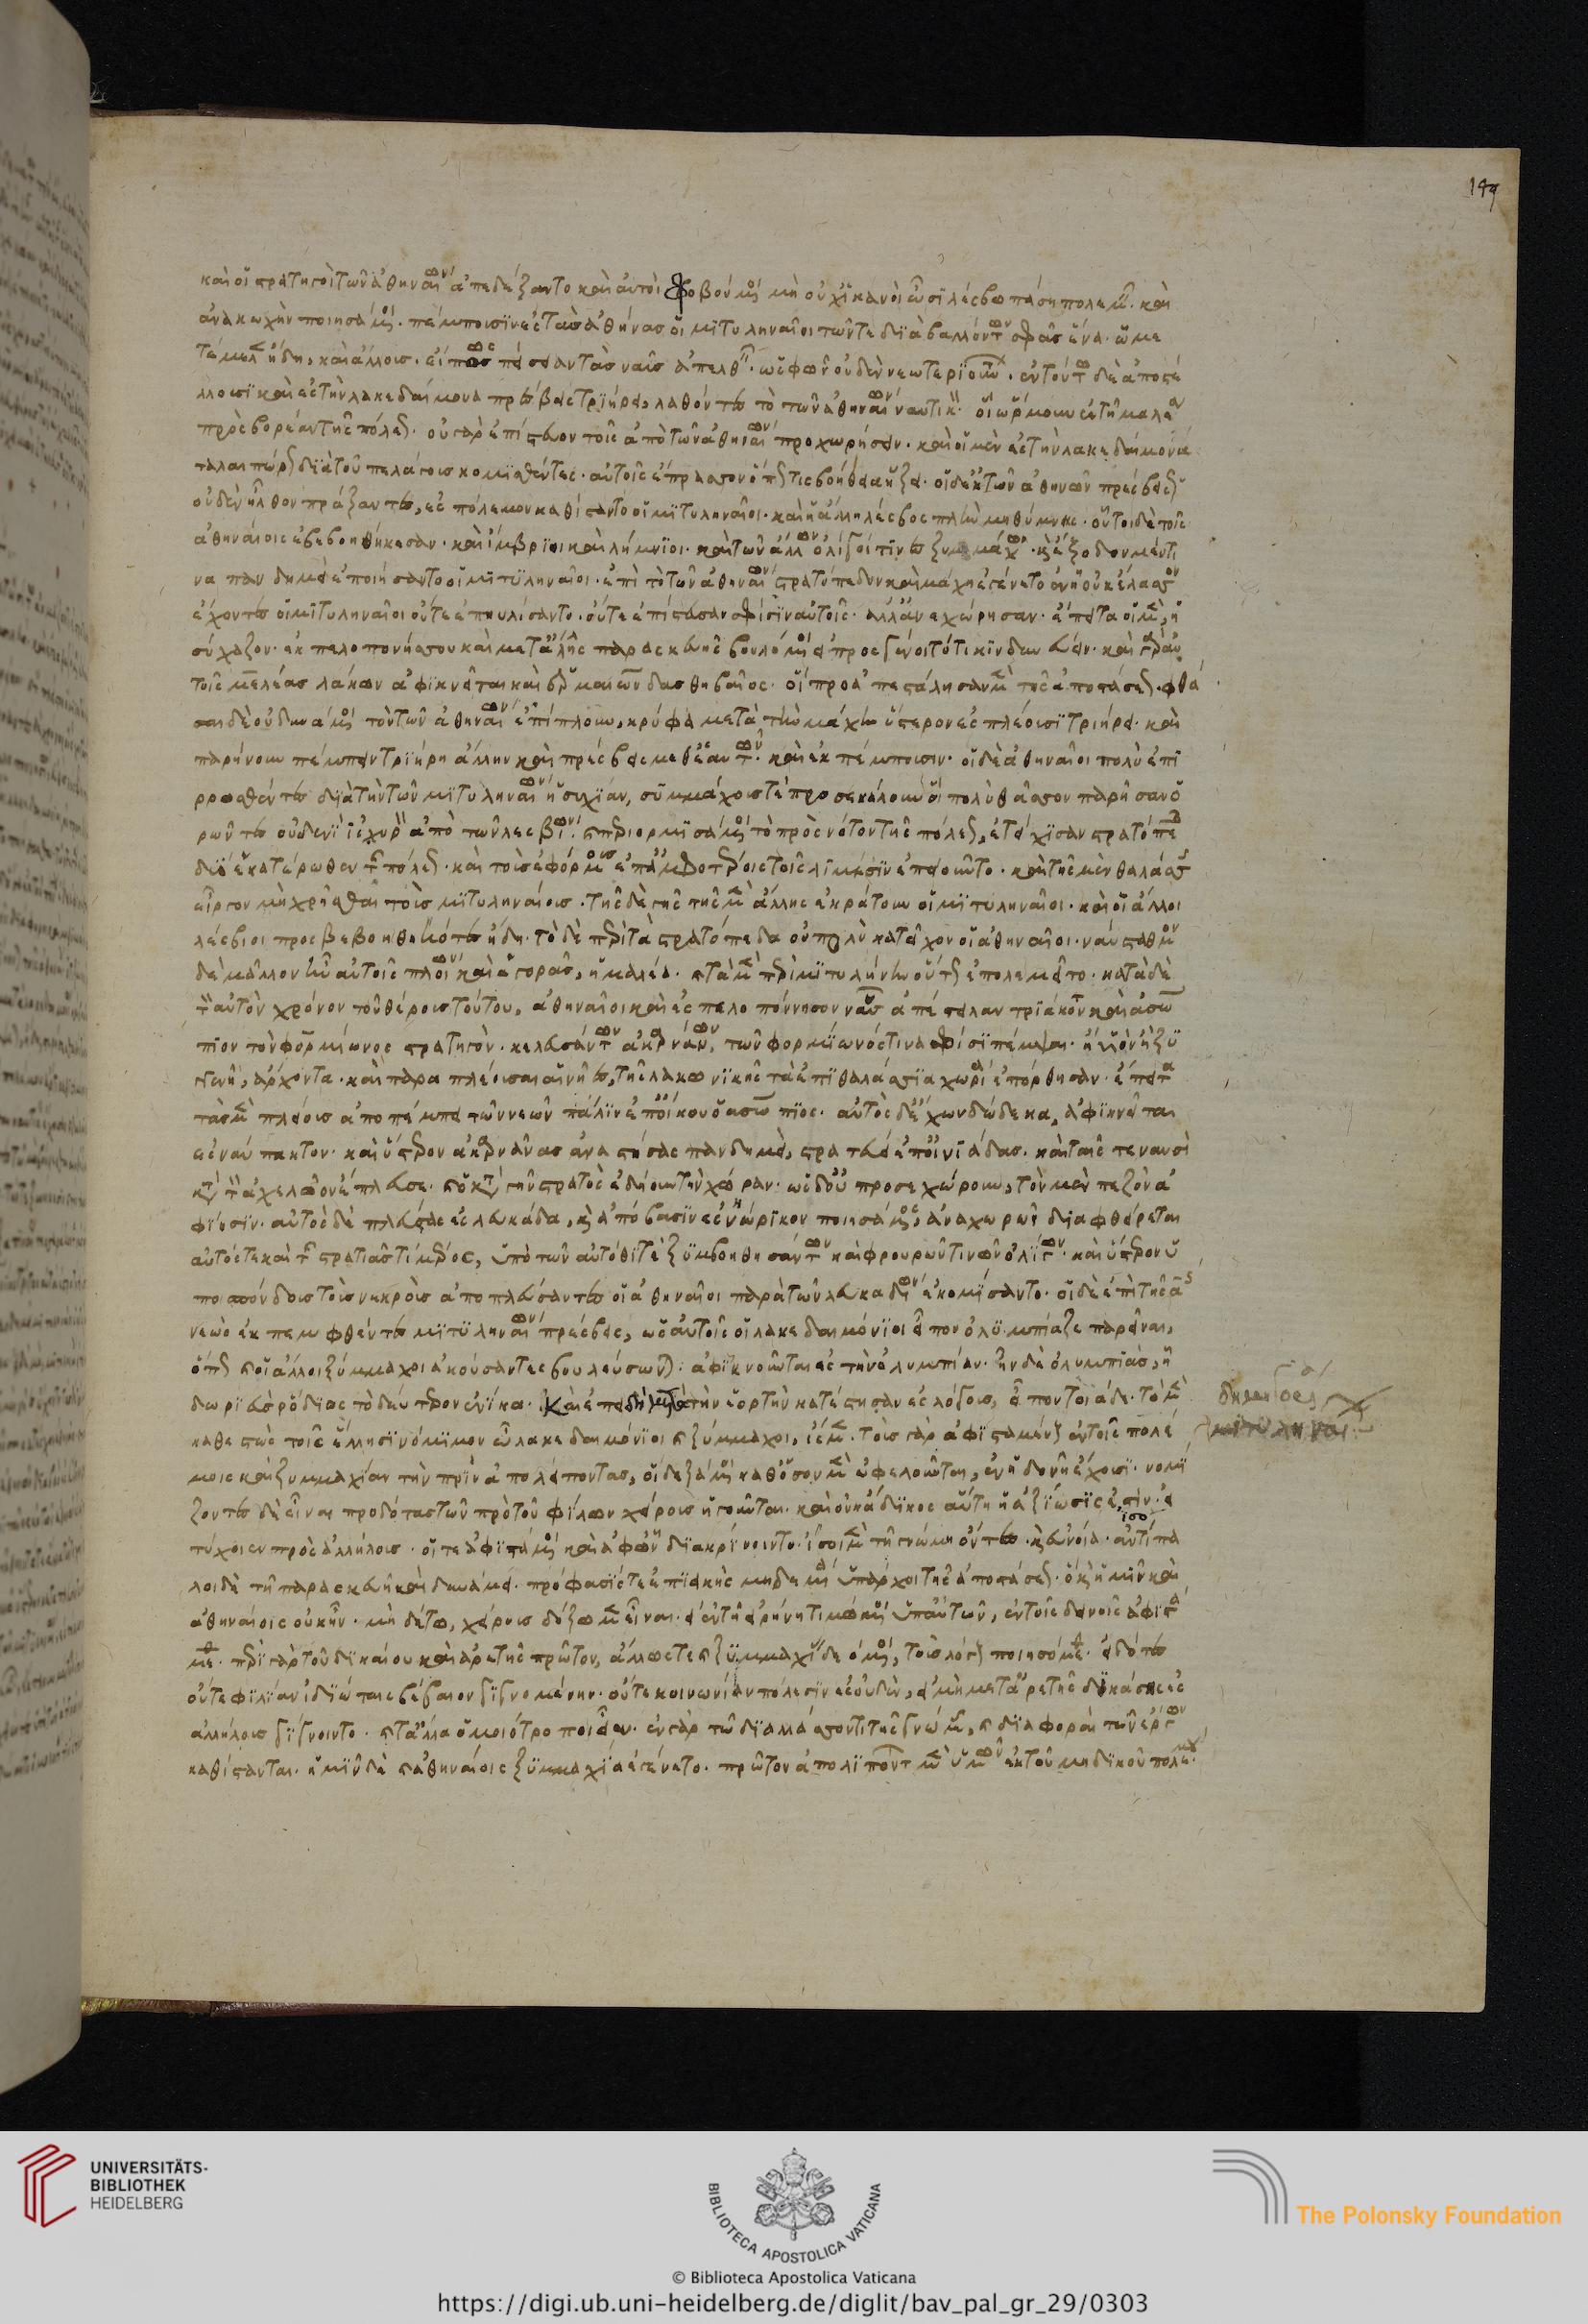 149
καὶ οἱ στρατηγοὶ τῶν ἀθηναίων ἀπεδέξαντο καὶ αὐτοὶ φοβούμενοι μὴ οὐχ ἱκανοὶ ὦσι λέσβω πάση πολεμεῖν. καὶ
ἀνακωχὴν ποιησάμενοι. πέμπουσιν ἐς τὰς ἀθήνας οἱ μιτυληναῖοι τῶν τε διαβαλλόντων σφᾶς ἕνα. ὧ με
τέμελεν ἤδη, καὶ ἄλλους. εἴ πως πείσειαν τὰς ναῦς ἀπελθεῖν. ὡς σφῶν οὐδὲν νεωτεριούντων. ἐν τούτω δὲ ἀποστέ
λλουσι καὶ ἐς τὴν λακεδαίμονα πρέσβεις τριήρει, λαθόντες τὸ τῶν ἀθηναίων ναυτικόν. οἳ ὥρμουν ἐν τῆ μαλέα
πρὸς βορέαν τῆς πόλεως. οὐ γὰρ ἐπίστευον τοῖς ἀπὸ τῶν ἀθηναίων προχωρήσειν. καὶ οἱ μὲν ἐς τὴν λακεδαίμονα
ταλαιπώρως διὰ τοῦ πελάγους κομισθέντες. αὐτοῖς ἔπρασσον ὅπως τις βοήθεια ἥξει. οἱ δ' ἐκ τῶν ἀθηνῶν πρέσβεις ὡς
οὐδὲν ἦλθον πράξαντες, ἐς πόλεμον καθίσταντο οἱ μιτυληναῖοι. καὶ ἡ ἄλλη λέσβος πλὴν μηθύμνης. οὗτοι δὲ τοῖς
ἀθηναίοις ἐβεβοηθήκεσαν. καὶ ἴμβριοι καὶ λήμνιοι. καὶ τῶν ἄλλων ὀλίγοι τινες ξυμμάχων. καὶ ἔξοδον μέν τι
να πανδημεὶ ἐποιήσαντο οἱ μιτυληναῖοι. ἐπὶ τὸ τῶν ἀθηναίων στρατόπεδον καὶ μάχη ἐγένετο ἐν ἧ οὐκ ἔλασσον
ἔχοντες οἱ μιτυληναῖοι οὔτε ἐπηυλίσαντο. οὔτε ἐπίστευσαν σφίσιν αὐτοῖς. ἀλλ' ἀνεχώρησαν. ἔπειτα οἱ μὲν, ἡ
σύχαζον. ἐκ πελοποννήσου καὶ μετ' ἄλλης παρασκευῆς βουλόμενοι εἰ προσγένοιτό τι κινδυνεύειν. καὶ γὰρ αὐ
τοῖς μελέας λάκων ἀφικνεῖται καὶ ἑρμαιώνδας θηβαῖος. οἳ προαπεστάλησαν μὲν τῆς ἀποστάσεως. φθά
σαι δὲ οὐ δυνάμενοι τὸν τῶν ἀθηναίων ἐπίπλουν, κρύφα μετὰ τὴν μάχην ὕστερον ἐσπλέουσι τριήρει. καὶ
παρήνουν πέμπειν τριήρη ἄλλην καὶ πρέσβεις μεθ' ἑαυτῶν. καὶ ἐκπέμπουσιν. οἱ δὲ ἀθηναῖοι πολὺ ἐπι
ρρωσθέντες διὰ τὴν τῶν μιτυληναίων ἡσυχίαν, συμμάχους τὲ προσεκάλουν οἳ πολὺ θᾶσσον παρῆσαν ὁ
ρῶντες οὐδενὶ ἰσχυρὸν ἀπὸ τῶν λεσβίων. καὶ περιορμισάμενοι τὸ πρὸς νότον τῆς πόλεως, ἐτείχισαν στρατόπεδα
δύο ἑκατέρωθεν τῆς πόλεως. καὶ τοὺς ἐφόρμους ἐπ' ἀμφοτέροις τοῖς λιμέσιν ἐποιοῦντο. καὶ τῆς μὲν θαλάσσης
εἶργον μὴ χρῆσθαι τοὺς μιτυληναίους. τῆς δὲ γῆς τῆς μὲν ἄλλης ἐκράτουν οἱ μιτυληναῖοι. καὶ οἱ ἄλλοι
λέσβιοι προσβεβοηθηκότες ἤδη. τὸ δὲ περὶ τὰ στρατόπεδα οὐ πολὺ κατεῖχον οἱ ἀθηναῖοι. ναύσταθμον
δὲ μᾶλλον ἦν αὐτοῖς πλοίων καὶ ἀγορᾶς, ἡ μαλέα. καὶ τὰ μὲν περὶ μιτυλήνην οὕτως ἐπολεμεῖτο. κατὰ δὲ
τὸν αὐτὸν χρόνον τοῦ θέρους τούτου, ἀθηναῖοι καὶ ἐς πελοπόννησον ναῦς ἀπέστειλαν τριάκοντα καὶ ἀσώ
πιον τὸν φορμίωνος στρατηγὸν. κελευσάντων ἀκαρνάνων, τῶν φορμίωνός τινα σφίσι πέμψαι. ἢ υἱὸν ἢ ξυ
γγενῆ, ἄρχοντα. καὶ παραπλέουσαι αἱ νῆες, τῆς λακωνικῆς τὰ ἐπιθαλάσσια χωρία ἐπόρθησαν. ἔπειτα
τὰς μὲν πλείους ἀποπέμπει τῶν νεῶν πάλιν ἐπ' οἴκου ὁ ἀσώπιος. αὐτὸς δ' ἔχων δώδεκα, ἀφικνεῖται
ἐς ναύπακτον. καὶ ὕστερον ἀκαρνᾶνας ἀναστήσας πανδημεὶ, στρατεύει ἐπ' οἰνιάδας. καὶ ταῖς τε ναυσὶ
κατὰ τὸν ἀχελῶον ἔπλευσε. καὶ ὁ κατὰ γῆν στρατὸς ἐδήου τὴν χώραν. ὡς δ' οὐ προσεχώρουν, τὸν μὲν πεζὸν ἀ
φίησιν. αὐτὸς δὲ πλεύσας ἐς λευκάδα, καὶ ἀπόβασιν ἐς νήρικον ποιησάμενος, ἀναχωρῶν διαφθείρεται
αὐτός τε καὶ τῆς στρατιᾶς τι μέρος, ὑπὸ τῶν αὐτόθι τὲ ξυμβοηθησάντων καὶ φρουρῶν τινῶν ὀλίγων. καὶ ὕστερον ὑ
ποσπόνδους τοὺς νεκροὺς ἀποπλεύσαντες οἱ ἀθηναῖοι παρὰ τῶν λευκαδίων ἐκομίσαντο. οἱ δὲ ἐπὶ τῆς α
νεὼς ἐκπεμφθέντες μιτυληναίων πρέσβεις, ὡς αὐτοῖς οἱ λακεδαιμόνιοι εἶπον ὀλυμπίαζε παρεῖναι,
ὅπως καὶ οἱ ἄλλοι ξύμμαχοι ἀκούσαντες βουλεύσωνται: ἀφικνοῦνται ἐς τὴν ὀλυμπίαν. ἦν δὲ ὀλυμπιὰς, ἧ
δωριεὺς ῥόδιος τὸ δεύτερον ἐνίκα. καὶ ἐπειδὴ μετὰ τὴν ἑορτὴν κατέστησαν ἐς λόγους, εἶπον τοιάδε. τὸ μὲν
καθεστὼς τοῖς ἕλλησι νόμιμον ὦ λακεδαιμόνιοι καὶ ξύμμαχοι, ἴσμεν. τοὺς γὰρ ἀφισταμένους ἐν τοῖς πολέ
μοις καὶ ξυμμαχίαν τὴν πρὶν ἀπολείποντας, οἱ δεξάμενοι καθ' ὅσον μὲν ὠφελοῦνται, ἐν ἡδονῆ ἔχουσι. νομί
ζοντες δὲ εἶναι προδότας τῶν πρὸ τοῦ φίλων χείρους ἡγοῦνται. καὶ οὐκ ἄδικος αὕτη ἡ ἀξίωσίς ἐστιν. εἰ
τύχοιεν πρὸς ἀλλήλους. οἵ τε ἀφιστάμενοι καὶ ἀφ' ὧν διακρίνοιντο. ἴσοι μὲν τῆ γνώμη ὄντες. καὶ εὐνοία. ἀντίπα
λοι δὲ τῆ παρασκευῆ καὶ δυνάμει. πρόφασίς τε ἐπιεικὴς μηδεμία ὑπάρχοι τῆς ἀποστάσεως. ὃ καὶ ἡμῖν καὶ
ἀθηναίοις οὐκ ἦν. μὴ δέ τω, χείρους δόξωμεν εἶναι. εἰ ἐν τῆ εἰρήνη τιμώμενοι ὑπ' αὐτῶν, ἐν τοῖς δεινοῖς ἀφιστά
μεθα. περὶ γὰρ τοῦ δικαίου καὶ ἀρετῆς πρῶτον, ἄλλως τε καὶ ξυμμαχίας δεόμενοι, τοὺς λόγους ποιησόμεθα. εἰδότες
οὔτε φιλίαν ἰδιώταις βέβαιον γιγνομένην. οὔτε κοινωνίαν πόλεσιν ἐς οὐδὲν, εἰ μὴ μετ' ἀρετῆς δοκούσης ἐς
ἀλλήλους γίγνοιντο. καὶ τἆλλα ὁμοιότροποι εἶεν. ἐν γὰρ τῶ διαλλάσσοντι τῆς γνώμης, καὶ διαφοραὶ τῶν ἔργων
καθίστανται. ἡμῖν δὲ καὶ ἀθηναίοις ξυμμαχία ἐγένετο. πρῶτον ἀπολιπόντων μὲν ὑμῶν ἐκ τοῦ μηδικοῦ πολέμου.
δημηγορία
μιτυληναίων
UNIVERSITÄTS-
BIBLIOTHEK
HEIDELBERG
BIBLIOTECA APOSTOLICA VATICANA
The Polonsky Foundation
© Biblioteca Apostolica Vaticana
https://digi.ub.uni-heidelberg.de/diglit/bav_pal_gr_29/0303